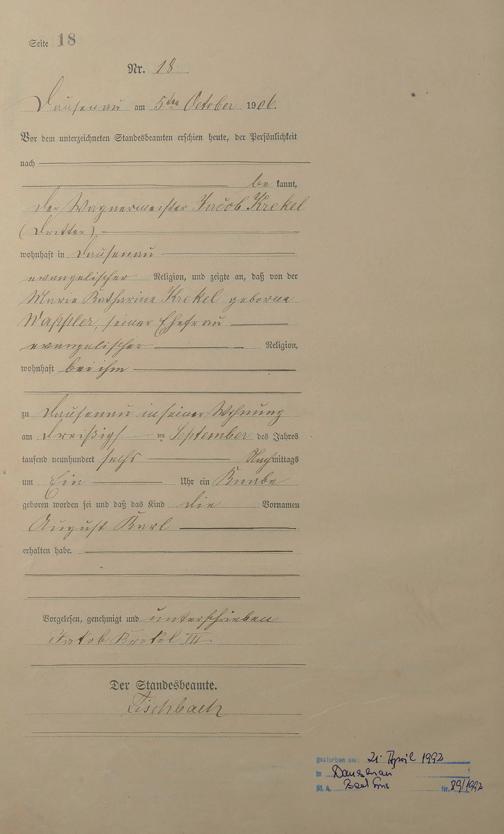 Seite 18
Nr. 18
Dausenau am 5ten October 1906.
Vor dem unterzeichneten Standesbeamten erschien heute, der Persönlichkeit
nach
be kannt,
der Wagnermeister Jacob Krekel
(Dritter),
wohnhaft in Dausenau
evangelischer Religion, und zeigte an, daß von der
Marie Katharine Krekel geborne
Wappler, seiner Ehefrau
evangelischer Religion,
wohnhaft bei ihm
zu Dausenau in seiner Wohnung
am dreißigsten September des Jahres
tausend neunhundert sechs Nachmittags
um Ein Uhr ein Knabe
geboren worden sei und daß das Kind die Vornamen
August Karl
erhalten habe.
Vorgelesen, genehmigt und unterschrieben
Jakob Krekel III
Der Standesbeamte.
Fischbach
Gestorben am: 21. April 1992
in Dausenau
St. A. Bad Ems Nr. 89/1992